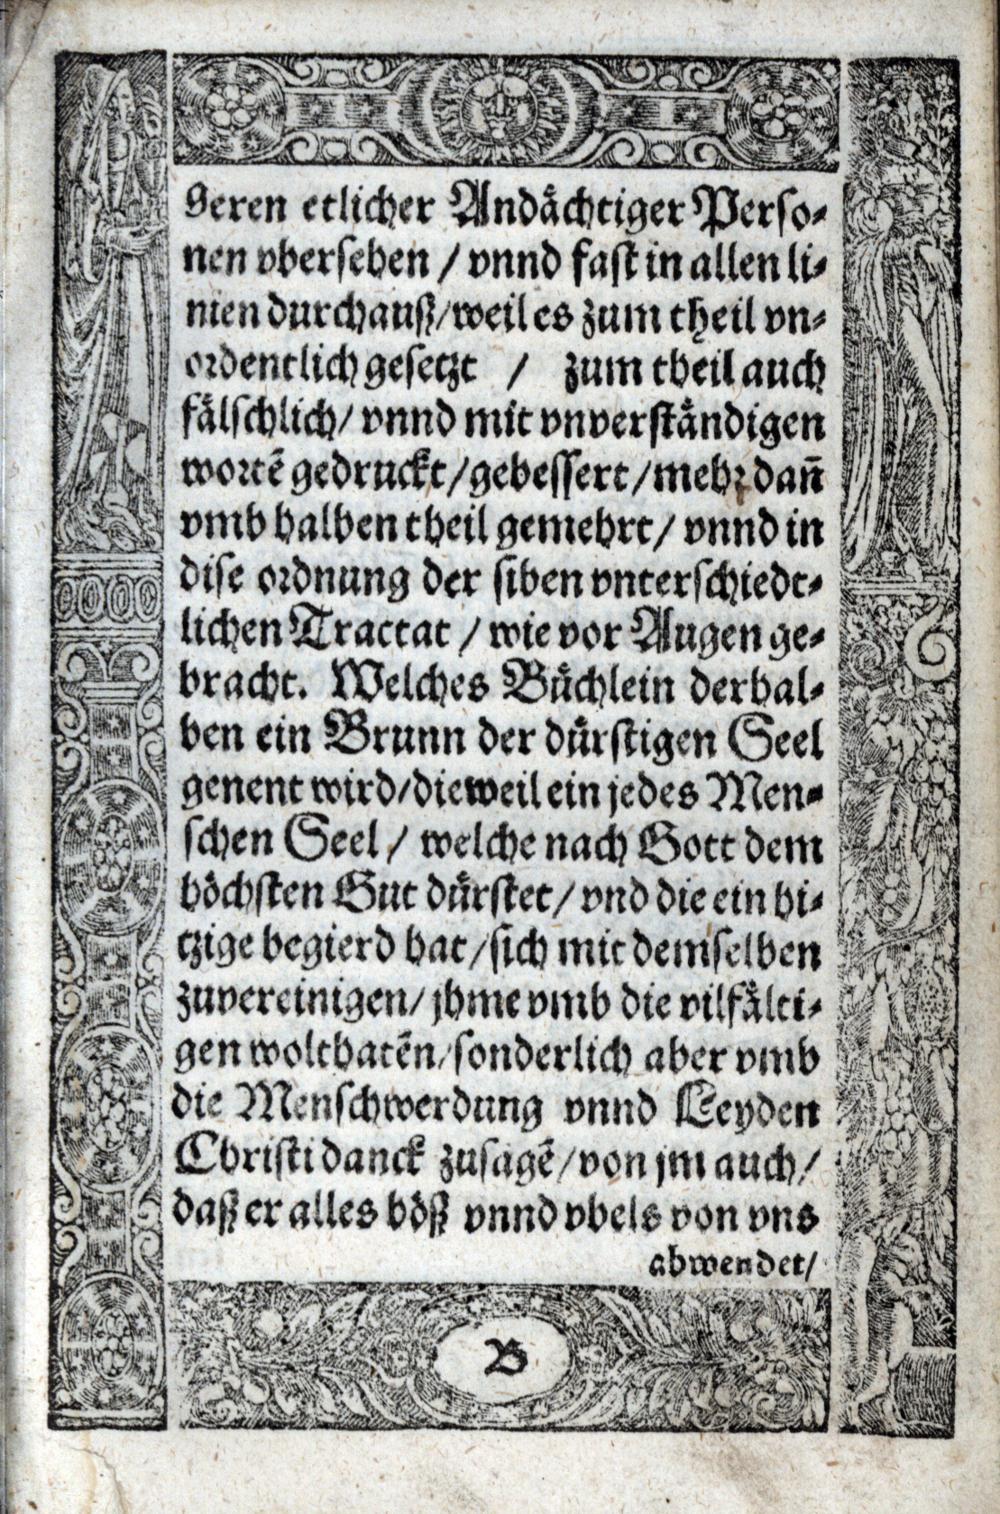 geren etlicher Andächtiger Perso⸗
nen vbersehen / vnnd fast in allen li⸗
nien durchauß/weil es zum theil vn⸗
ordentlich gesetzt / zum theil auch
fälschlich/ vnnd mit vnverständigen
wortē gedruckt/gebessert/mehr dañ
vmb halben theil gemehrt/ vnnd in
dise ordnung der siben vnterschiedt⸗
lichen Tractat / wie vor Augen ge⸗
bracht. Welches Büchlein derhal⸗
ben ein Brunn der dürstigen Seel
genent wird/dieweil ein jedes Men⸗
schen Seel/ welche nach Gott dem
höchsten Gut dürstet/ vnd die ein hi⸗
tzige begierd hat/sich mit demselben
zuvereinigen/ jhme vmb die vilfälti⸗
gen wolthatēn/sonderlich aber vmb
die Menschwerdung vnnd Leyden
Christi danck zusagē/von jm auch/
daß er alles böß vnnd vbels von vns
abwendet/
B